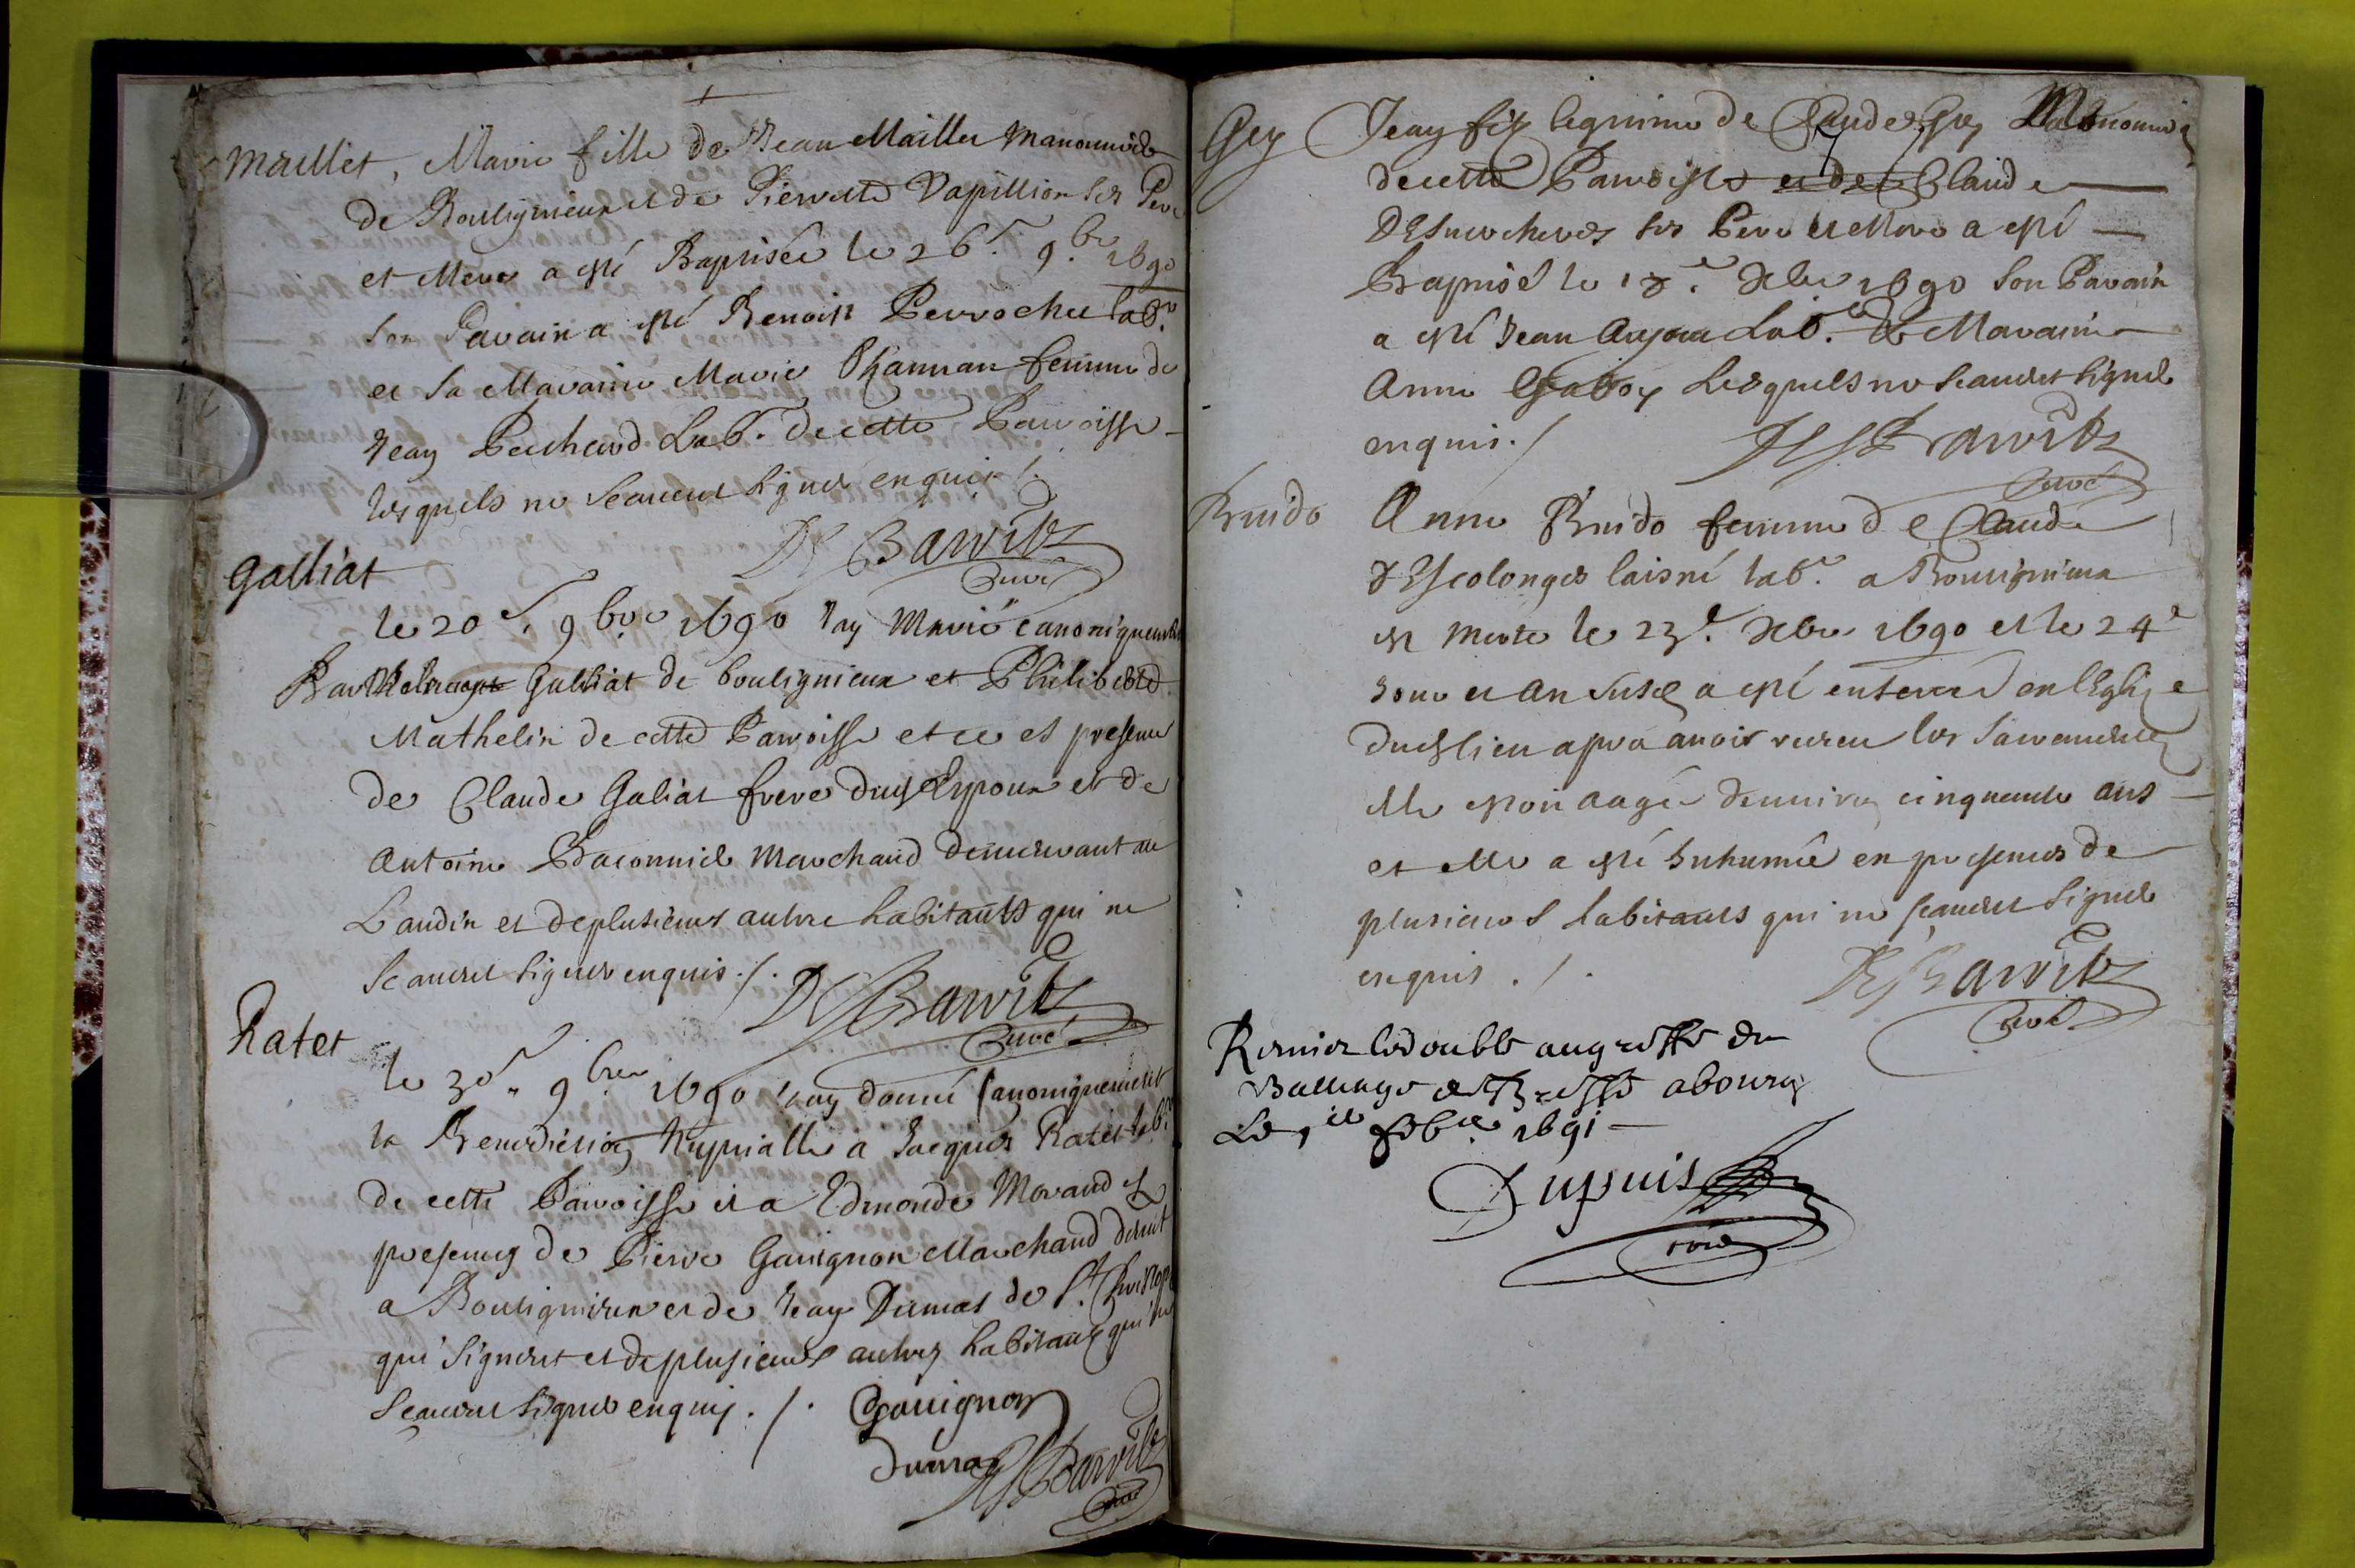 Maillet, Marie fille de Jean Maillet Manouvrier
de Bouligneux et de Pierrette Papillion ses Pere
et Mere a esté Baptisée le 26e. 9bre 1690
son Parain a esté Benoist Perrochet labr.
et sa Maraine Marie Channan femme de
Jean Pechard Lab. de cette Paroisse
lesquels ne scavent signer enquis ./.
Curé
Galliat
le 20e. 9bre 1690 Jay Marié canoniquement
Galliat de bouligneux et Philiberte
Mathelin de cette Paroisse et ce es presence
de Claude Galiat frere dud Espoux et de
Antoine Braconnier Marchand demeurant au
Baudin et de plusieurs autre habitants qui ne
scavent signer enquis ./.
Curé
Ratet
le 30e. 9bre 1690 Jay donné Canoniquement
la Benediction Nuptialle a Jacques Ratet labr
de cette Paroisse et a Edmonde Morand es
presences de Pierre Gavignon Marchand demt
a Bouligneux et de Jean Dumas de St. Christophe
qui signent et de plusieurs autres habitans qui ne
scavent signer enquis ./. Gavignon
Dumas
Curé
Gey Jean fils legitime de Claude Gey Manouvrier
de cette Paroisse et de Claude
Desuercheres ses Pere et Mere a esté
Baptisé le 18e. Xbre 1690 son Parain
a esté Jean Labr. et Maraine
Anne Gaboy Lesquels ne scavent signer
enquis ./
Curé
Bruido Anne Bruido femme de Claude
d'Escolonges laisné labr. a Bouligneux
est morte le 23e. Xbre 1690 et le 24e
Jour et an susd a esté enterré en l'Eglise
dud lieu apres avoir receu les sacremens
elle estoit aagée d'environ cinquante ans
et elle a esté Inhumée en presences de
plusieurs habitants qui ne scavent signer
enquis ./.
Curé
Remier le double au greffe du
Balliage de Bresse a bourg
Le 1er febre 1691
Dupuis